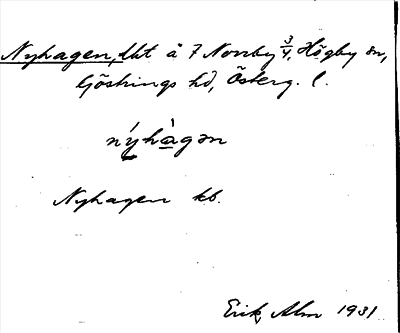 Nyhagen, lht å 7 Norrby 3/4, Högby sn,
Göstrings hd, Österg. l.
nýhàgən
Nyhagen kb.
Erik Alm 1931